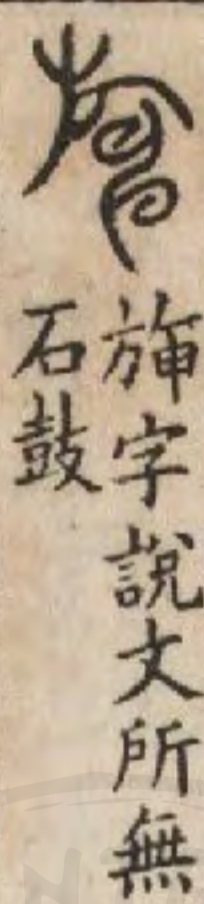 字說文所無
石鼓